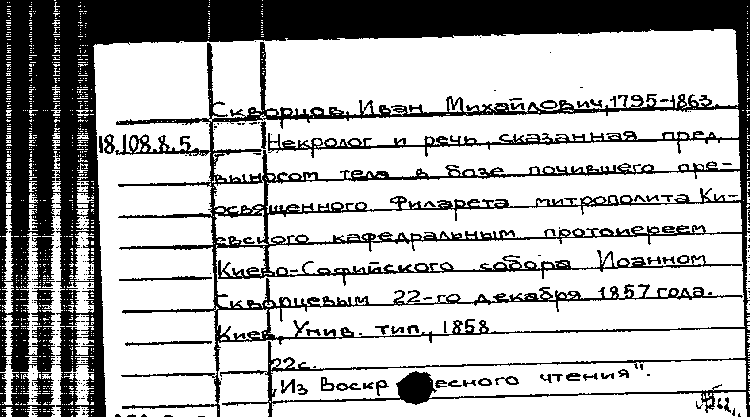 Скворцов, Иван Михайлович, 1795-1863.
18.108.8.5. Некролог и речь, сказанная пред
выносом тела в бозе почившего пре-
освященного Филарета митрополита Ки-
евского кафедральным протоиереем
Киево-Софийского собора Иоанном
Скворцевым 22-го декабря 1857 года.
Киев, Унив. тип., 1858.
22с.
„Из Воскр есного чтения".